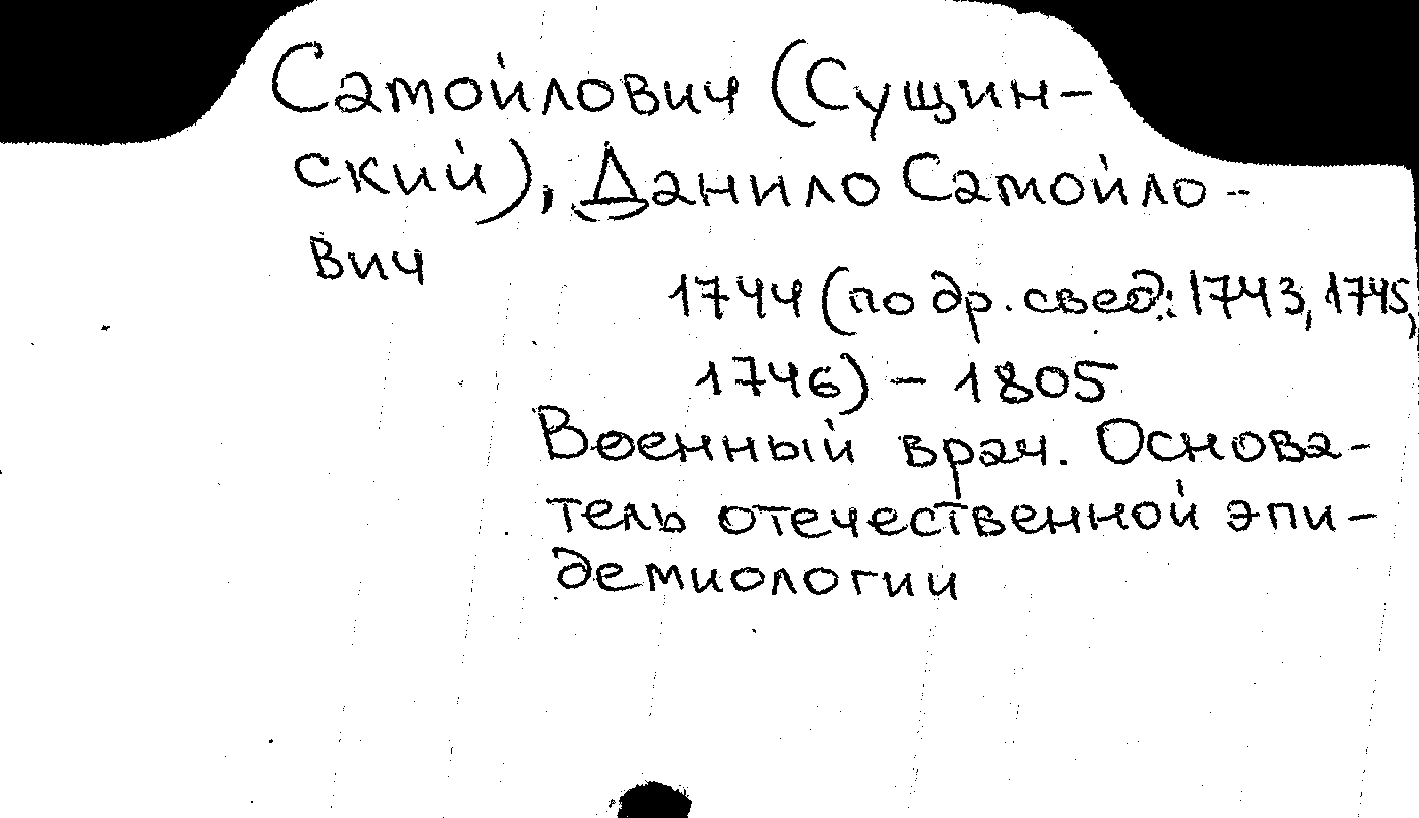 Самойлович (Сущин-
ский), Данило Самойло-
вич
1744 (по др. свед.: 1743, 1745,
1746) – 1805
Военный врач. Основа-
тель отечественной эпи-
демиологии